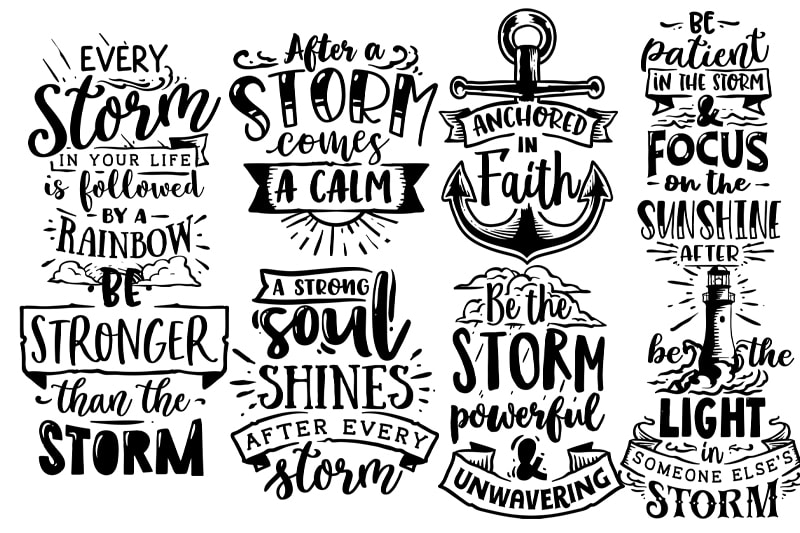 EVERY
Storm
IN YOUR LIFE
is followed
BY A
RAINBOW
BE
STRONGER
than the
STORM
After a
STORM
comes
A CALM
A STRONG
soul
SHINES
AFTER EVERY
storm
ANCHORED
IN
Faith
Be the
STORM
powerful
&
UNWAVERING
BE
patient
IN THE STORM
&
FOCUS
on the
SUNSHINE
AFTER
be the
LIGHT
in
SOMEONE ELSE'S
STORM